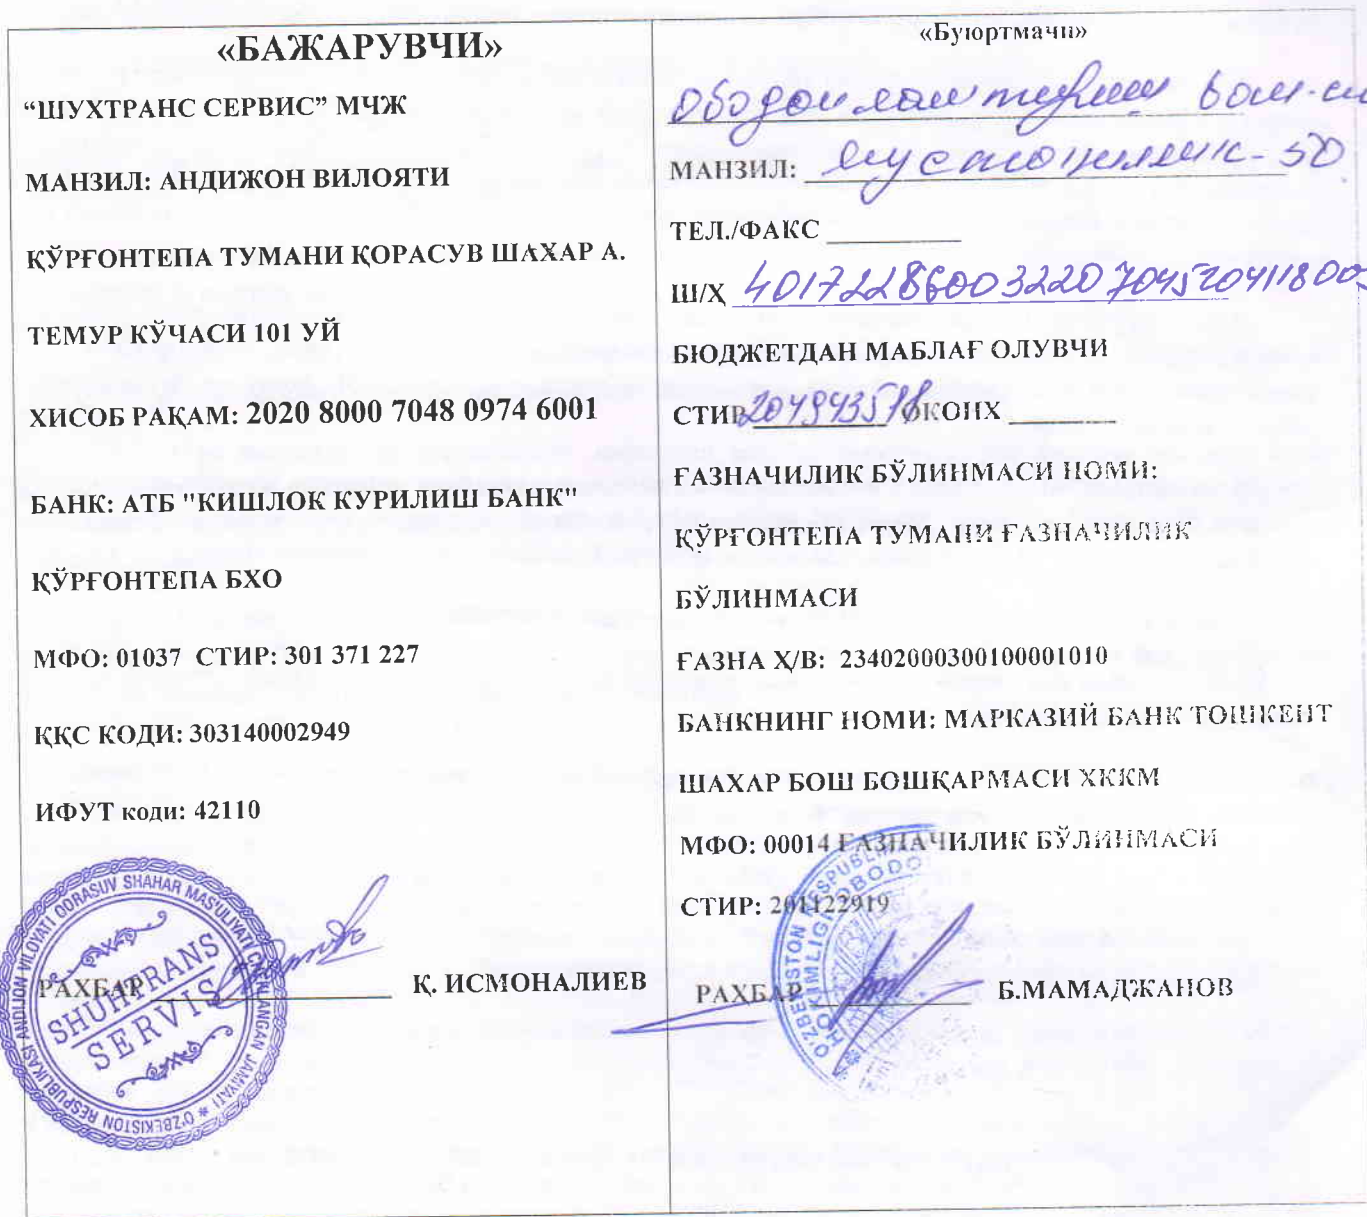 «БАЖАРУВЧИ»
“ШУХТРАНС СЕРВИС” МЧЖ
МАНЗИЛ: АНДИЖОН ВИЛОЯТИ
ҚЎРҒОНТЕПА ТУМАНИ ҚОРАСУВ ШАХАР А.
ТЕМУР КЎЧАСИ 101 УЙ
ХИСОБ РАҚАМ: 2020 8000 7048 0974 6001
БАНК: АТБ "КИШЛОК КУРИЛИШ БАНК"
ҚЎРҒОНТЕПА БХО
МФО: 01037 СТИР: 301 371 227
ҚҚС КОДИ: 303140002949
ИФУТ коди: 42110
РАХБАР Қ. ИСМОНАЛИЕВ
O'ZBEKISTON RESPUBLIKASI ANDIJON VILOYATI QORASUV SHAHAR MAS'ULIYATI CHEKLANGAN JAMIYATI
SHUHTRANS
SERVIS
«Буюртмачи»
Ободонлаштириш бош-си
МАНЗИЛ: Мустақиллик-50
ТЕЛ./ФАКС
Ш/Х 401722860032207045204118005
БЮДЖЕТДАН МАБЛАҒ ОЛУВЧИ
СТИР 204943578 ОКОНХ
ҒАЗНАЧИЛИК БЎЛИНМАСИ НОМИ:
ҚЎРҒОНТЕПА ТУМАНИ ҒАЗНАЧИЛИК
БЎЛИНМАСИ
ҒАЗНА Ҳ/В: 23402000300100001010
БАНКНИНГ НОМИ: МАРКАЗИЙ БАНК ТОШКЕНТ
ШАХАР БОШ БОШҚАРМАСИ ХККМ
МФО: 00014 ҒАЗНАЧИЛИК БЎЛИНМАСИ
СТИР: 201122919
РАХБАР Б.МАМАДЖАНОВ